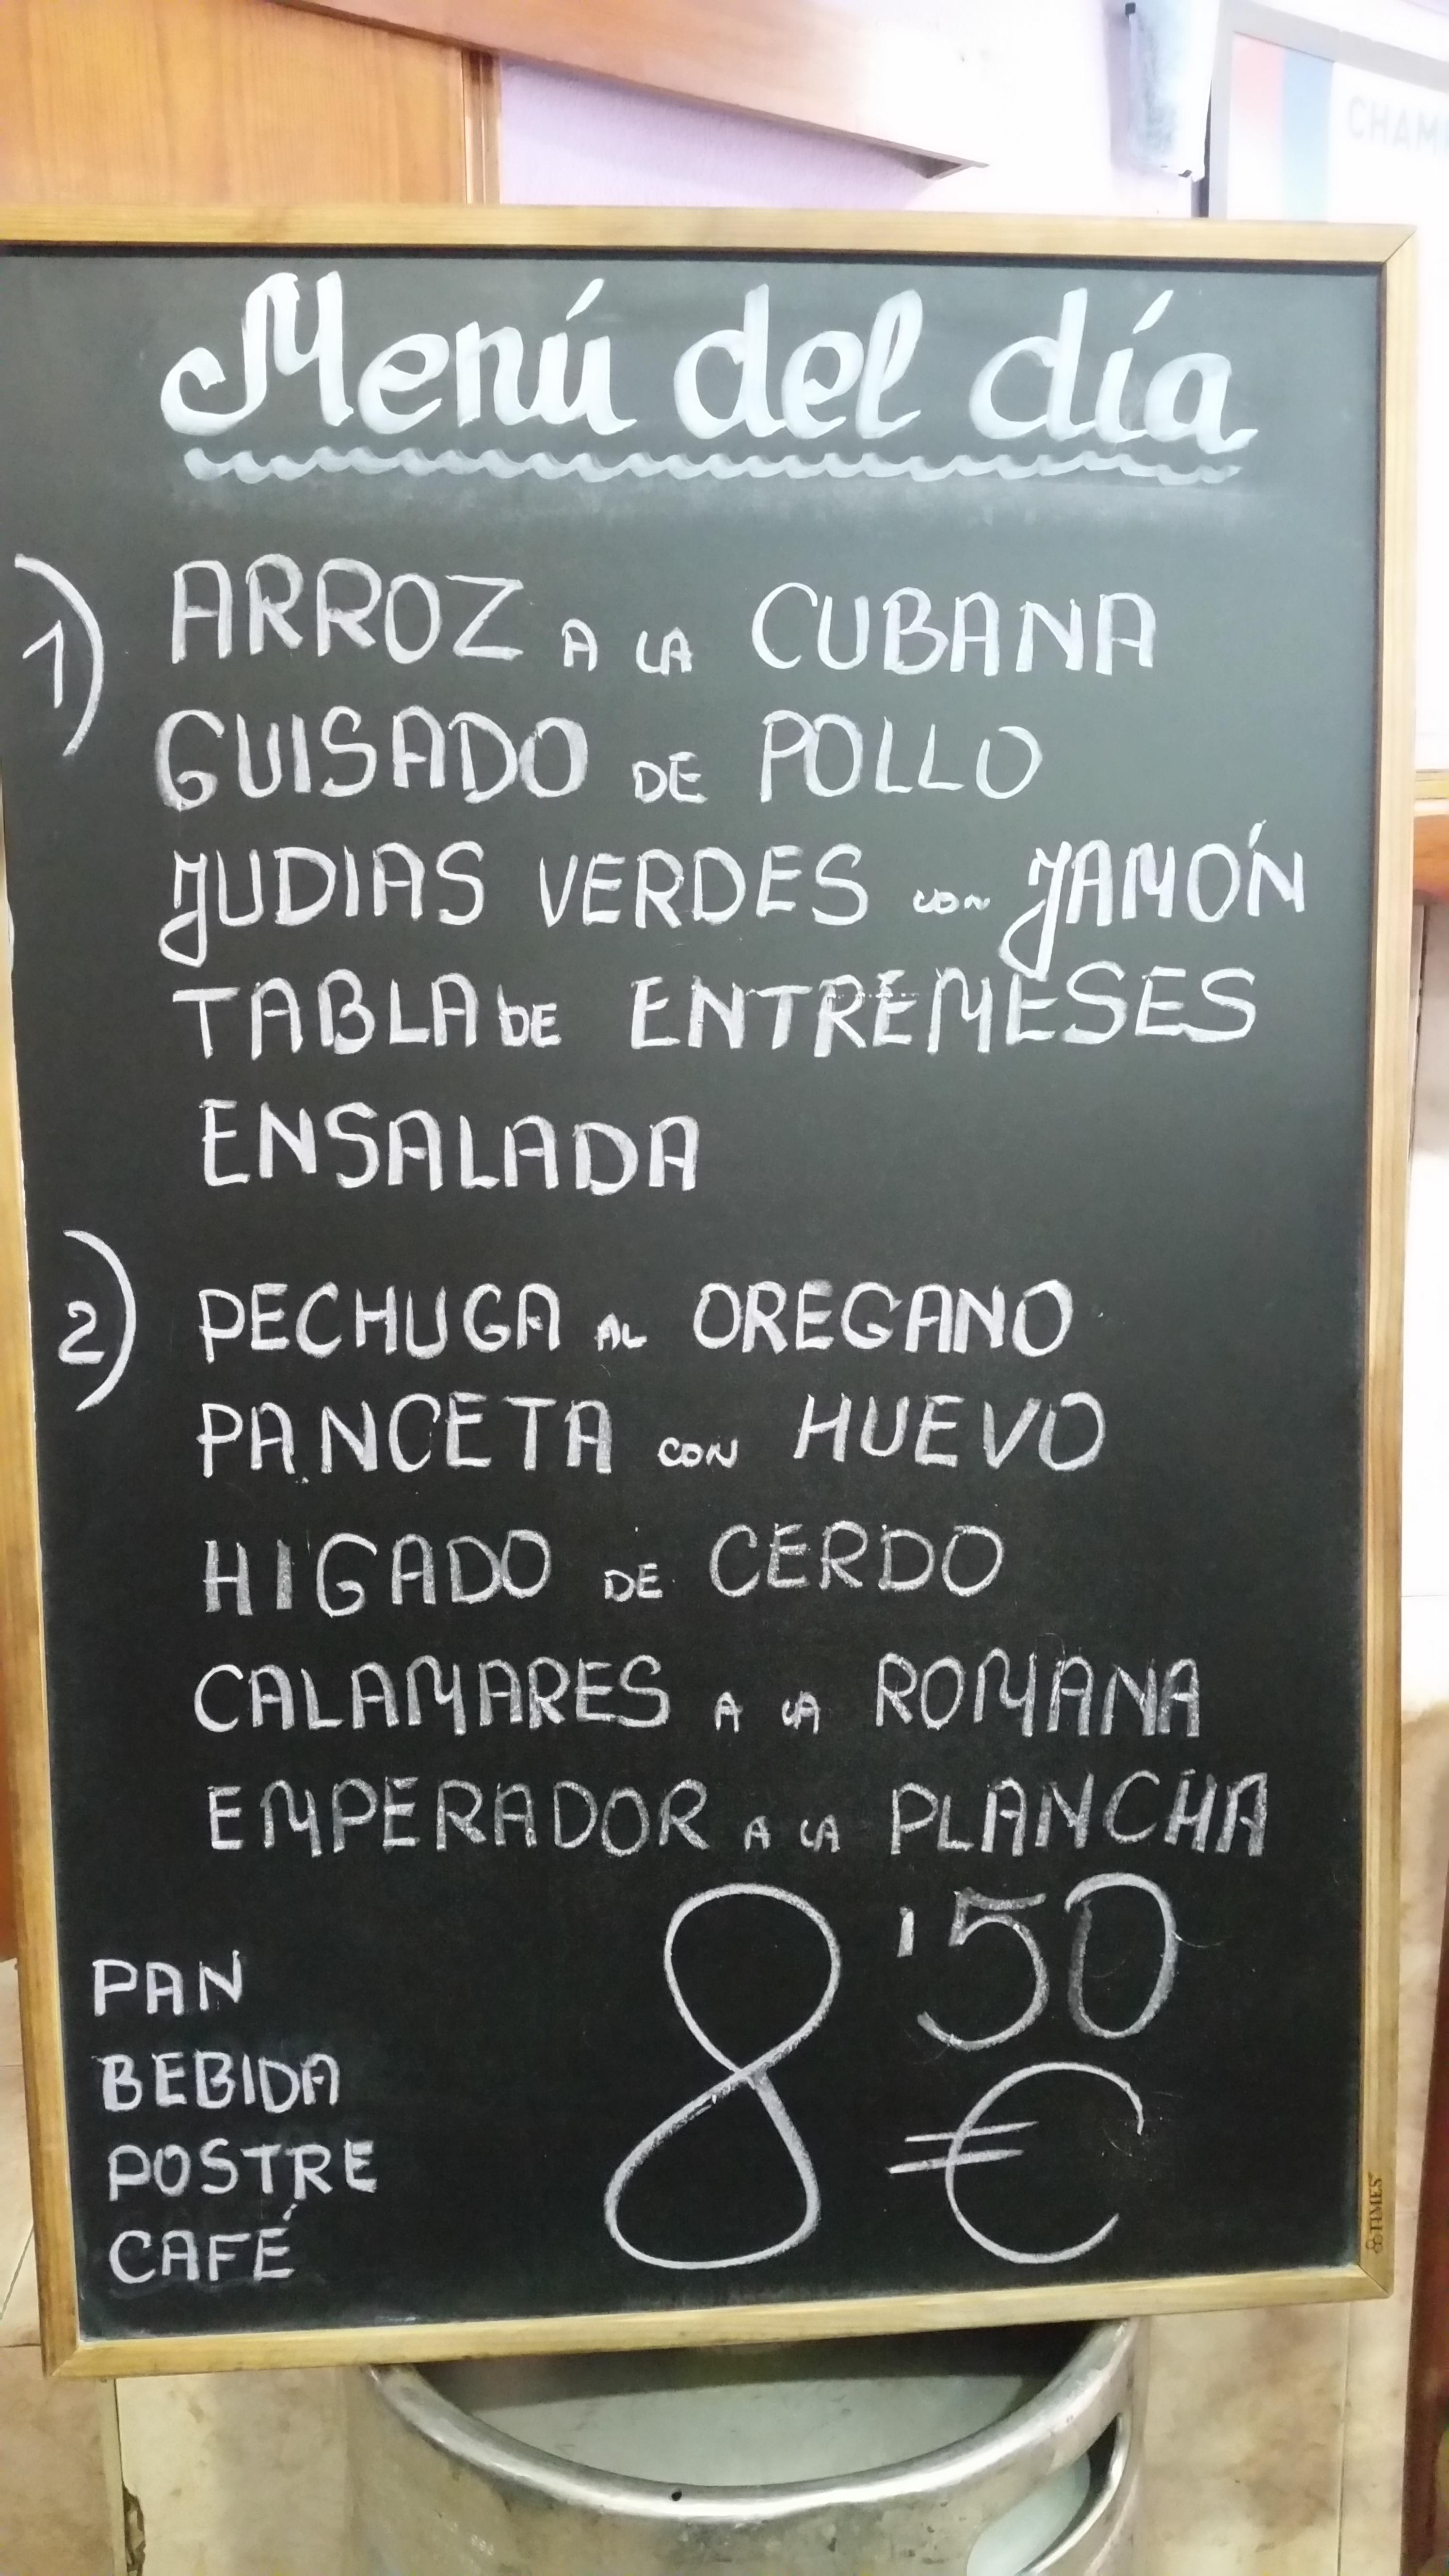 CHAM
Menú del día
1) ARROZ A LA CUBANA
GUISADO DE POLLO
JUDIAS VERDES CON JAMÓN
TABLA DE ENTREMESES
ENSALADA
2) PECHUGA AL OREGANO
PANCETA CON HUEVO
HIGADO DE CERDO
CALAMARES A LA ROMANA
EMPERADOR A LA PLANCHA
8'50 €
PAN
BEBIDA
POSTRE
CAFÉ
TIMES